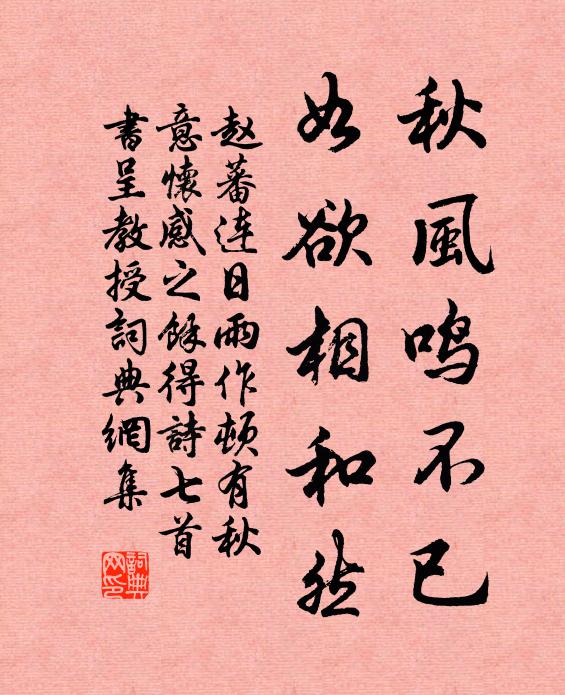 秋風鸣不已
如欲相和然
赵蕃连日雨作顿有秋
意懷感之餘得詩七首
書呈教授詞典網集
詞典
网印